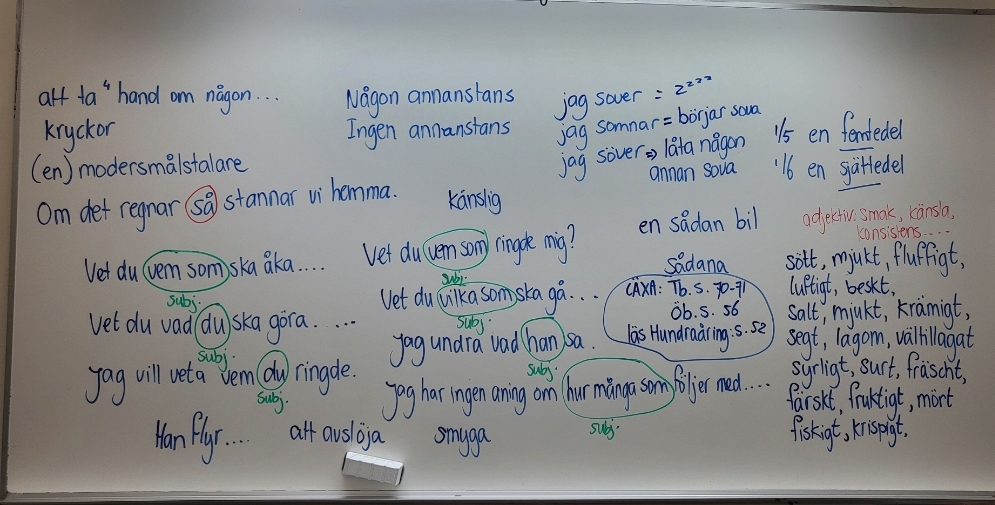 att ta" hand om någon...
kryckor
(en) modersmålstalare
Om det regnar så stannar vi hemma.
Någon annanstans
Ingen annanstans
känslig
jag sover = zzzzz
jag somnar = börjar sova
jag söver => låta någon
annan sova
1/5 en femtedel
1/6 en sjättedel
Vet du vem som ska åka....
subj.
Vet du vad du ska göra.....
subj.
jag vill veta vem du ringde.
subj.
Vet du vem som ringde mig?
subj.
Vet du vilka som ska gå...
subj.
jag undra vad han sa.
subj.
jag har ingen aning om hur många som följer med....
subj.
en sådan bil
sådana
LÄXA: Tb. s. 70-71
Öb. s. 56
läs Hundraåring: s. 52
adjektiv: smak, känsla,
konsistens....
sött, mjukt, fluffigt,
luftigt, beskt,
salt, mjukt, krämigt,
segt, lagom, vältillagat
syrligt, surt, fräscht,
färskt, fruktigt, mört
fiskigt, krispigt.
Han flyr.... att avslöja smyga